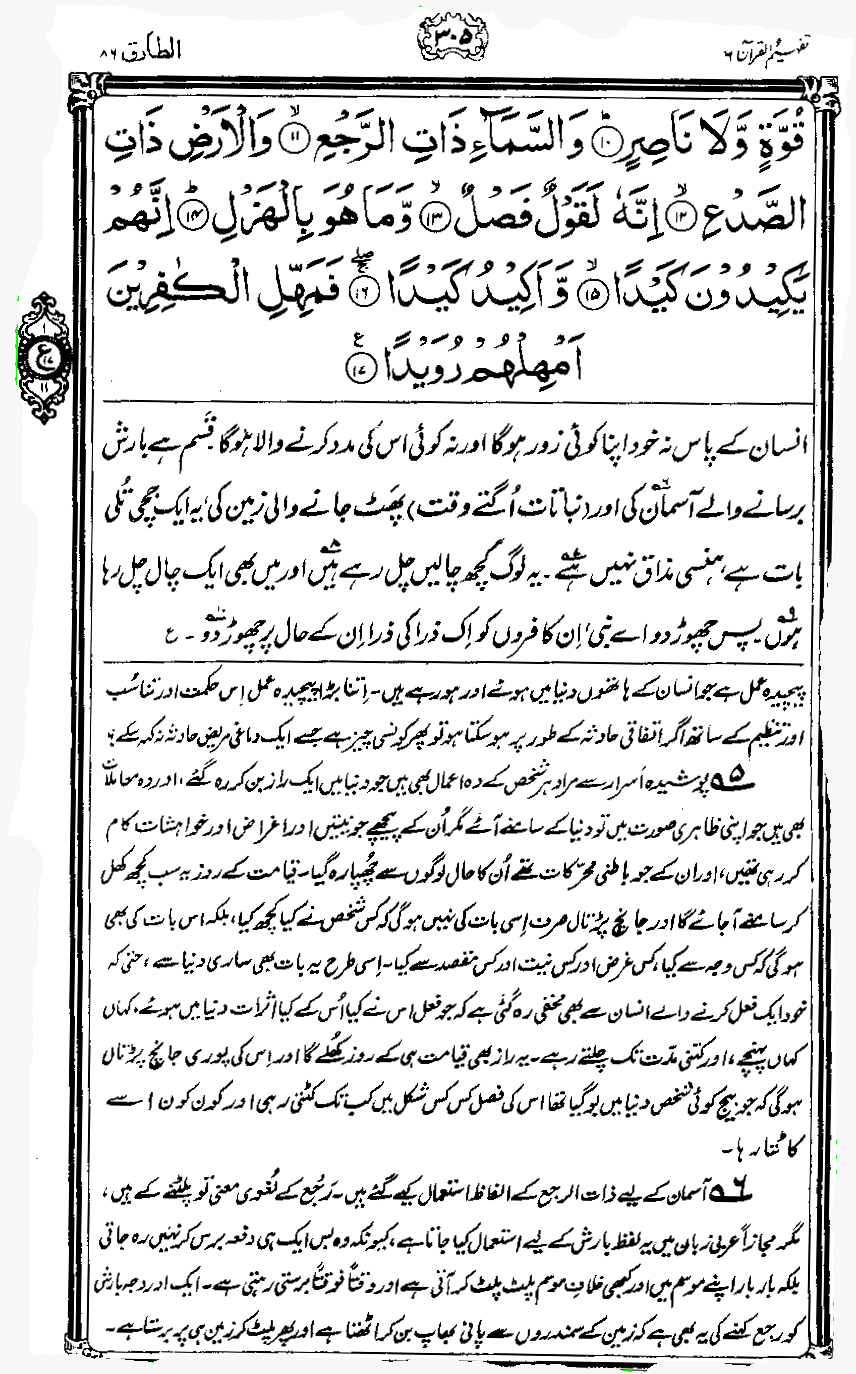 تفہیم القرآن ۶
۳۰۵
الطارق ۸۶
قُوَّةٍ وَّلَا نَاصِرٍ ۝۱۰ وَالسَّمَآءِ ذَاتِ الرَّجْعِ ۝۱۱ وَالْاَرْضِ ذَاتِ
الصَّدْعِ ۝۱۲ اِنَّهٗ لَقَوْلٌ فَصْلٌ ۝۱۳ وَّمَا هُوَ بِالْهَزْلِ ۝۱۴ اِنَّهُمْ
يَكِيْدُوْنَ كَيْدًا ۝۱۵ وَّاَكِيْدُ كَيْدًا ۝۱۶ فَمَهِّلِ الْكٰفِرِيْنَ
اَمْهِلْهُمْ رُوَيْدًا ۝۱۷
۱
ع
۱۷
۱۱
انسان کے پاس نہ خود اپنا کوئی زور ہوگا اور نہ کوئی اس کی مدد کرنے والا ہوگا۔ قسم ہے بارش
برسانے والے آسمان۶ کی اور (نباتات اُگتے وقت) پھٹ جانے والی زمین کی، یہ ایک جچی تُلی
بات ہے، ہنسی مذاق نہیں ہے۷۔ یہ لوگ کچھ چالیں چل رہے ہیں۸ اور میں بھی ایک چال چل رہا
ہوں۹۔ پس چھوڑ دو اے نبیؐ، اِن کافروں کو اِک ذرا کی ذرا اِن کے حال پر چھوڑ دو۱۰۔ ع
پیچیدہ عمل ہے جو انسان کے ہاتھوں دنیا میں ہوئے اور ہو رہے ہیں۔ اِتنا بڑا پیچیدہ عمل اِس حکمت اور تناسُب
اور تنظیم کے ساتھ اگر اتفاقی حادثہ کے طور پر ہو سکتا ہو تو پھر کونسی چیز ہے جسے ایک دماغی مریض حادثہ نہ کہہ سکے؟
۵؎ پوشیدہ اَسرار سے مراد ہر شخص کے وہ اعمال بھی ہیں جو دنیا میں ایک راز بن کر رہ گئے، اور وہ معاملات
بھی ہیں جو اپنی ظاہری صورت میں تو دنیا کے سامنے آئے مگر اُن کے پیچھے جو نیتیں اور اغراض اور خواہشات کام
کر رہی تھیں، اور ان کے جو باطنی محرّکات تھے اُن کا حال لوگوں سے چھُپا رہ گیا۔ قیامت کے روز یہ سب کچھ کھل
کر سامنے آ جائے گا اور جانچ پڑتال صرف اِسی بات کی نہیں ہوگی کہ کس شخص نے کیا کچھ کیا، بلکہ اس بات کی بھی
ہوگی کہ کس وجہ سے کیا، کس غرض اور کس نیت اور کس مقصد سے کیا۔ اِسی طرح یہ بات بھی ساری دنیا سے، حتیٰ کہ
خود ایک فعل کرنے والے انسان سے بھی مخفی رہ گئی ہے کہ جو فعل اس نے کیا اُس کے کیا اثرات دنیا میں ہوئے، کہاں
کہاں پہنچے، اور کتنی مدّت تک چلتے رہے۔ یہ راز بھی قیامت ہی کے روز کھُلے گا اور اِس کی پوری جانچ پڑتال
ہوگی کہ جو بیج کوئی شخص دنیا میں بو گیا تھا اس کی فصل کس کس شکل میں کب تک کٹتی رہی اور کون کون اسے
کاٹتا رہا۔
۶؎ آسمان کے لیے ذات الرجع کے الفاظ استعمال کیے گئے ہیں۔ رَجْع کے لُغوی معنی تو پلٹنے کے ہیں،
مگر مجازاً عربی زبان میں یہ لفظ بارش کے لیے استعمال کیا جاتا ہے، کیونکہ وہ بس ایک ہی دفعہ برس کر نہیں رہ جاتی
بلکہ بار بار اپنے موسم میں اور کبھی خلافِ موسم پلٹ پلٹ کر آتی ہے اور وقتاً فوقتاً برستی رہتی ہے۔ ایک اور وجہ بارش
کو رجع کہنے کی یہ بھی ہے کہ زمین کے سمندروں سے پانی بھاپ بن کر اٹھتا ہے اور پھر پلٹ کر زمین ہی پر برستا ہے۔